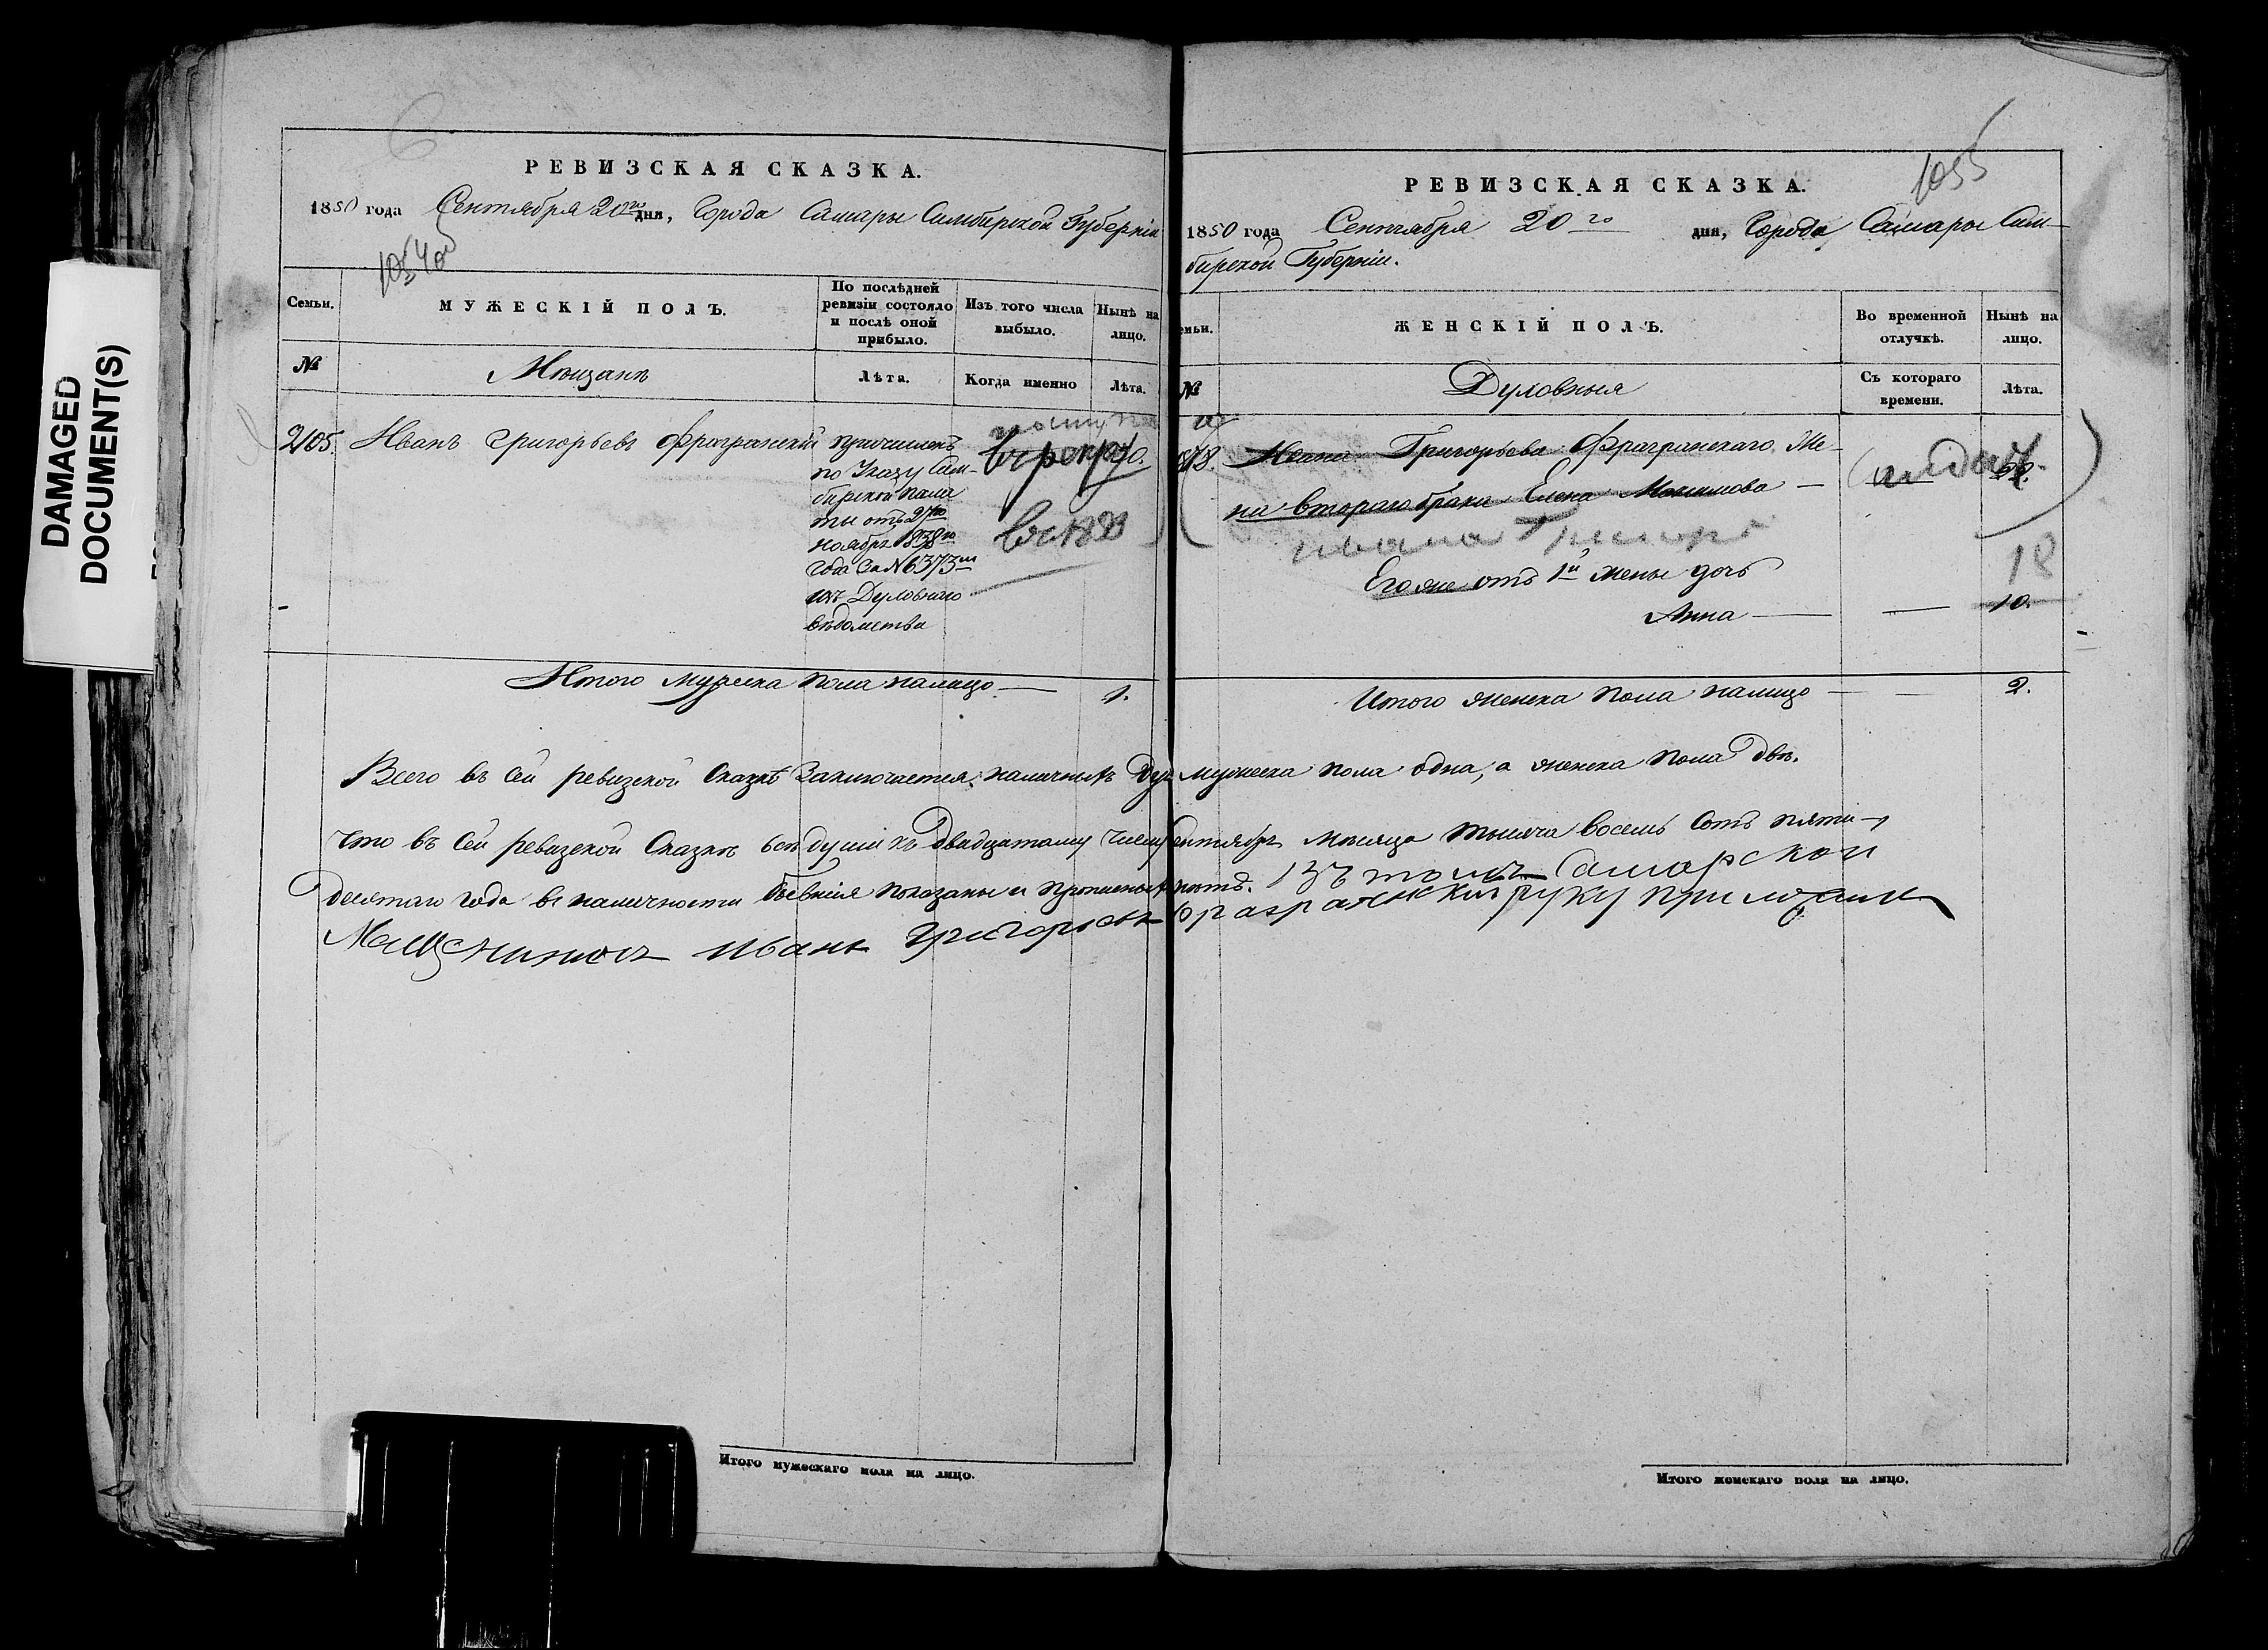 DAMAGED
DOCUMENT(S)
6
РЕВИЗСКАЯ СКАЗКА.
1850 года Сентября 20го дня, Города Самары Симбирской Губерніи
Семьи.
МУЖЕСКІЙ ПОЛЪ.
По послѣдней
ревизіи состояло
и послѣ оной
прибыло.
Изъ того числа
выбыло.
Нынѣ на
лицо.
№
Мѣщанъ
Лѣта.
Когда именно
Лѣта.
2105. Иванъ Григорьевъ Фрагранскій
причисленъ
по Указу Сим-
бирской пала
ты отъ 27го
ноября 1838го
года за № 6373м
изъ Духовнаго
вѣдомства
Итого мужеска пола налицо — 1.
1055
РЕВИЗСКАЯ СКАЗКА.
1850 года Сентября 20го дня, Города Самары Сим-
бирской Губерніи.
емьи.
ЖЕНСКІЙ ПОЛЪ.
Во временной
отлучкѣ.
Нынѣ на
лицо.
№
Духовныя
Съ котораго
времени.
Лѣта.
Ивана Григорьева Фрагранскаго Же-
на втораго брака Елена Максимова —
Ивана Григорь
18
Его же отъ 1й жены дочь
Анна — — 10.
Итого женска пола налицо — — 2.
Всего въ сей ревизской Сказкѣ заключается наличныхъ Ду мужеска пола одна, а женска пола двѣ.
Что въ сей ревизской Сказкѣ всѣ души къ Двадцатому числу Сентября Мѣсяца тысяча восемь сотъ пяти-
десятаго года въ наличности бывшія показаны и прописныхъ нѣтъ. Въ томъ Самарской
Мещенинъ Иванъ Григорьевъ Фрагранский руку приложилъ
Итого мужескаго пола на лицо.
Итого женскаго пола на лицо.